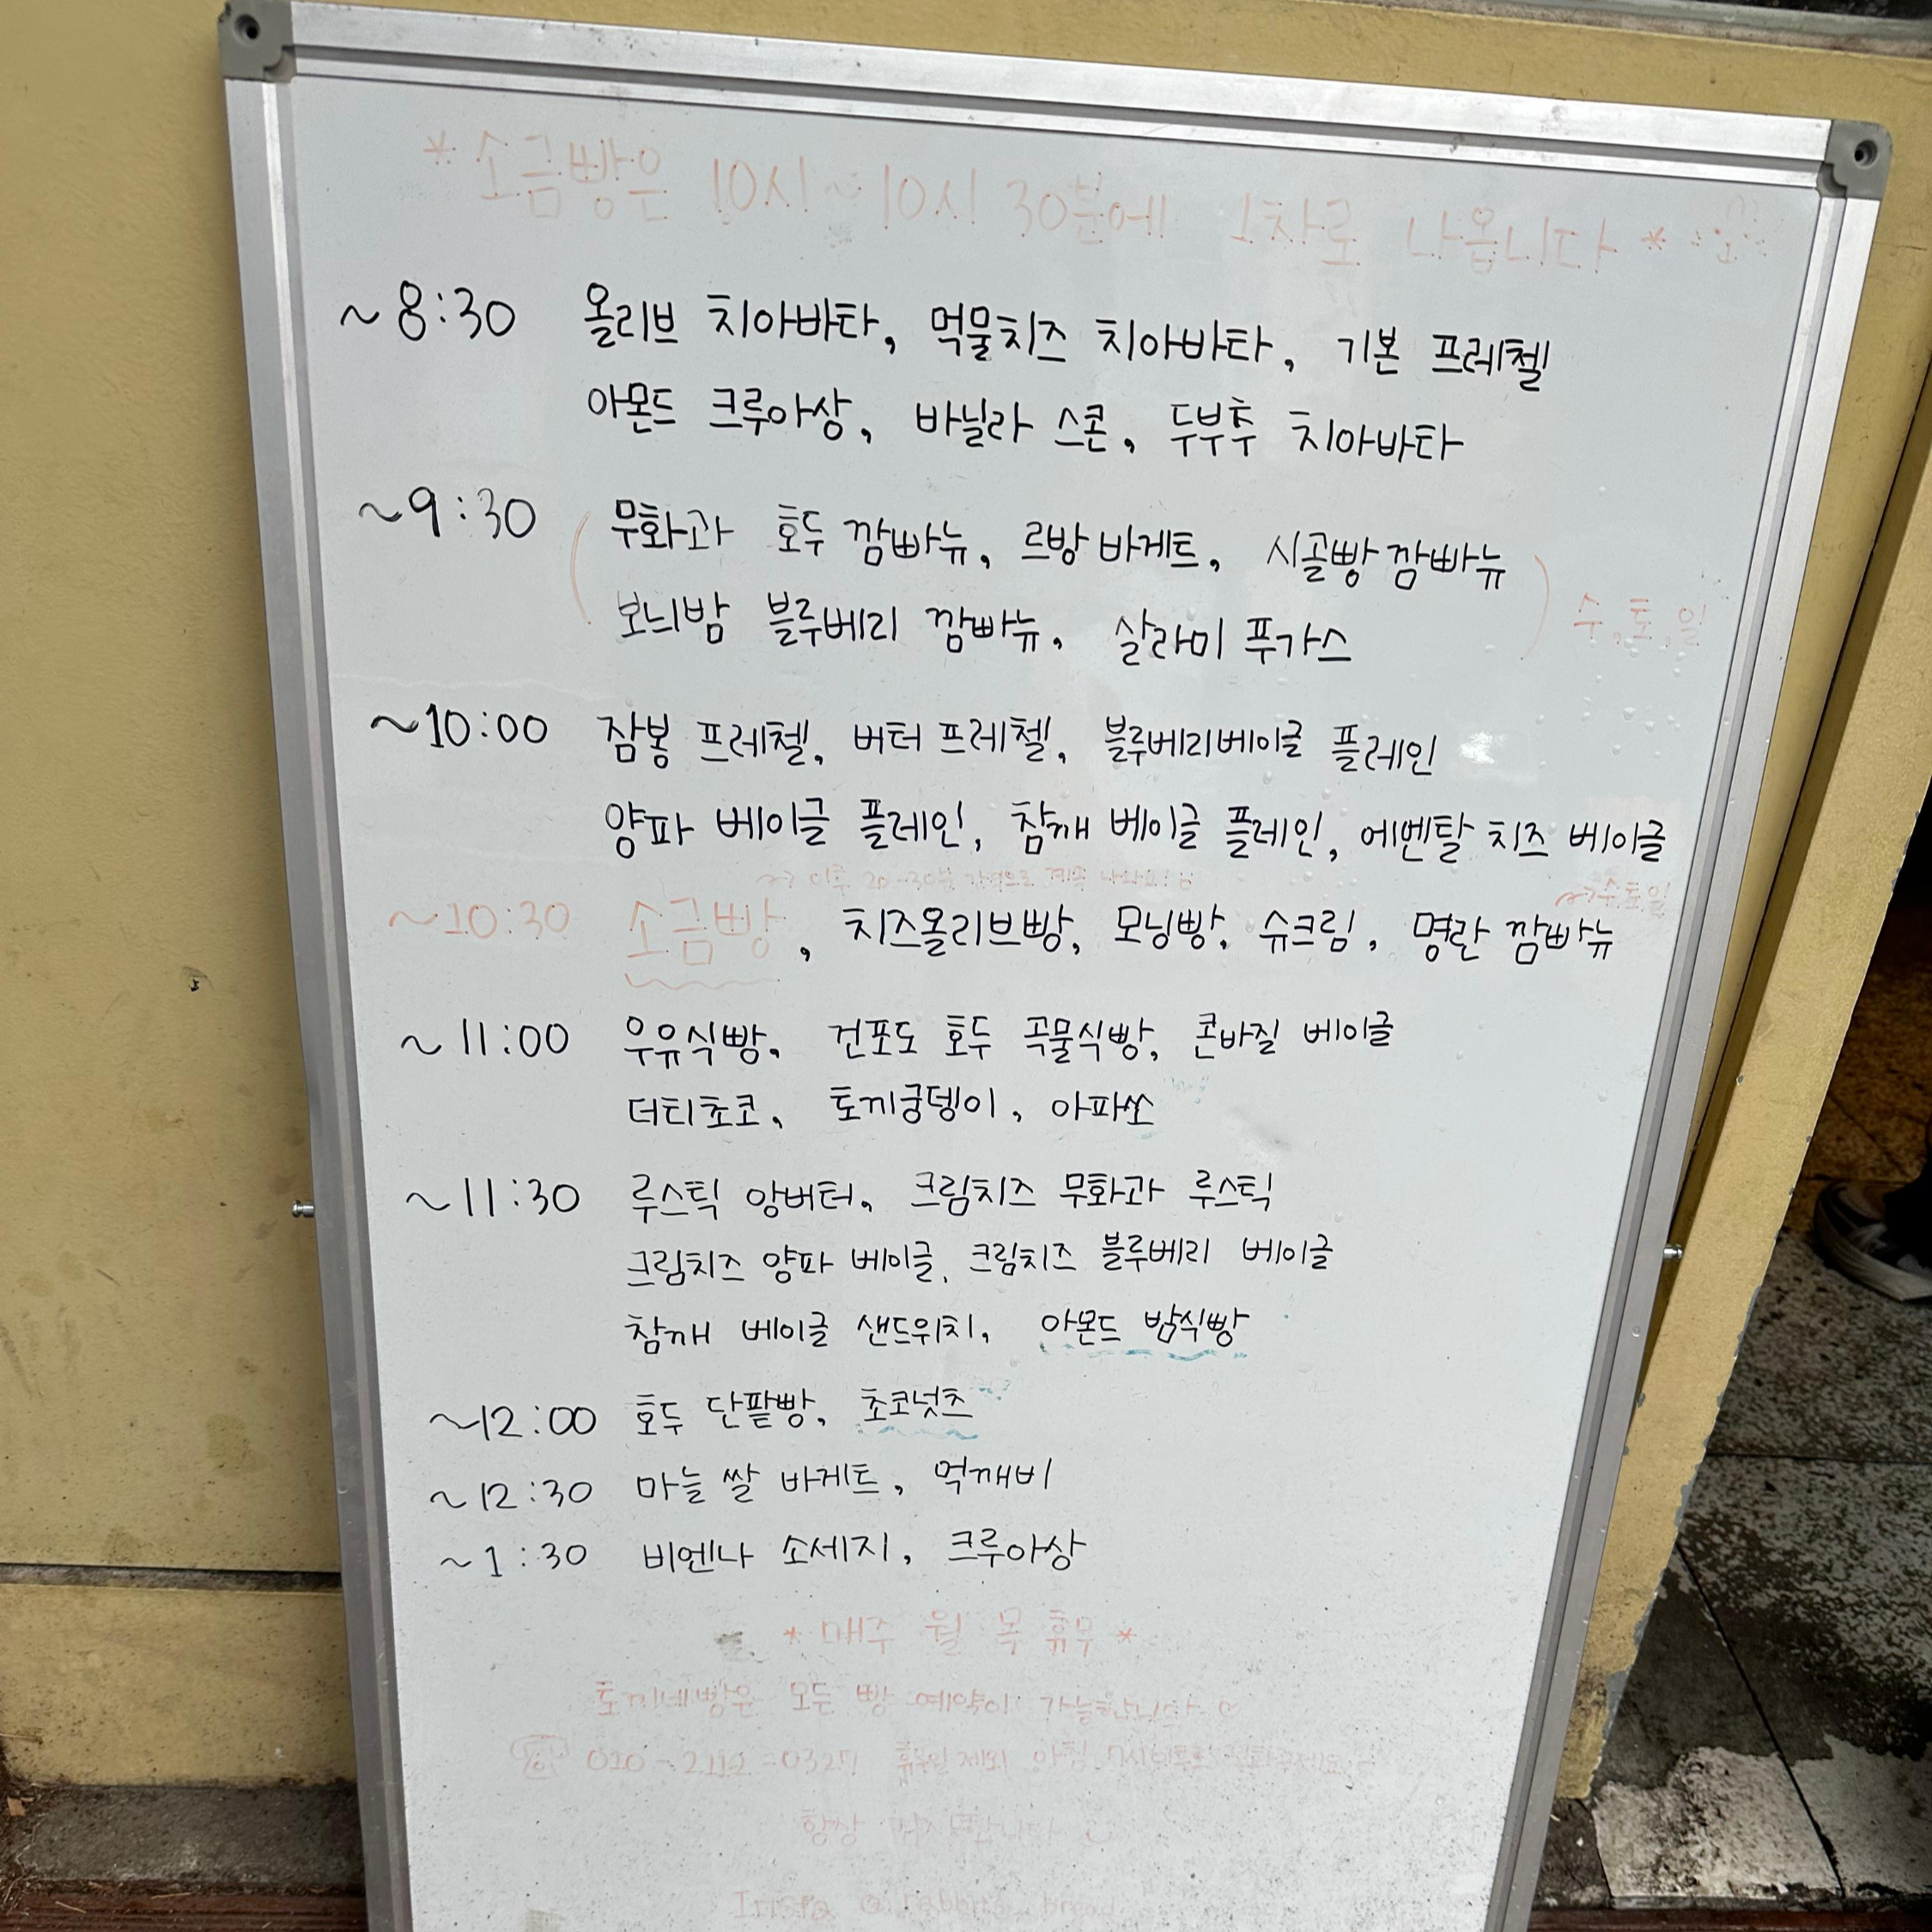 *소금빵은 10시~10시 30분에 1차로 나옵니다*
~8:30 올리브 치아바타, 먹물치즈 치아바타, 기본 프레첼
아몬드 크루아상, 바닐라 스콘, 두부추 치아바타
~9:30 무화과 호두 깜빠뉴, 르방 바게트, 시골빵 깜빠뉴
보늬밤 블루베리 깜빠뉴, 살라미 푸가스
수,토,일
~10:00 잠봉 프레첼, 버터 프레첼, 블루베리베이글 플레인
양파 베이글 플레인, 참깨 베이글 플레인, 에멘탈 치즈 베이글
~> 이후 20-30분 간격으로 계속 나와요!
~>수토일
~10:30 소금빵, 치즈올리브빵, 모닝빵, 슈크림, 명란 깜빠뉴
~11:00 우유식빵, 건포도 호두 곡물식빵, 콘바질 베이글
더티초코, 토끼궁뎅이, 아파쏘
~11:30 루스틱 앙버터, 크림치즈 무화과 루스틱
크림치즈 양파 베이글, 크림치즈 블루베리 베이글
참깨 베이글 샌드위치, 아몬드 밤식빵
~12:00 호두 단팥빵, 초코넛츠
~12:30 마늘 쌀 바게트, 먹깨비
~1:30 비엔나 소세지, 크루아상
*매주 월 목 휴무*
토끼네빵은 모든 빵 예약이 가능합니다
휴무일 제외 아침
항상 감사합니다
Insta